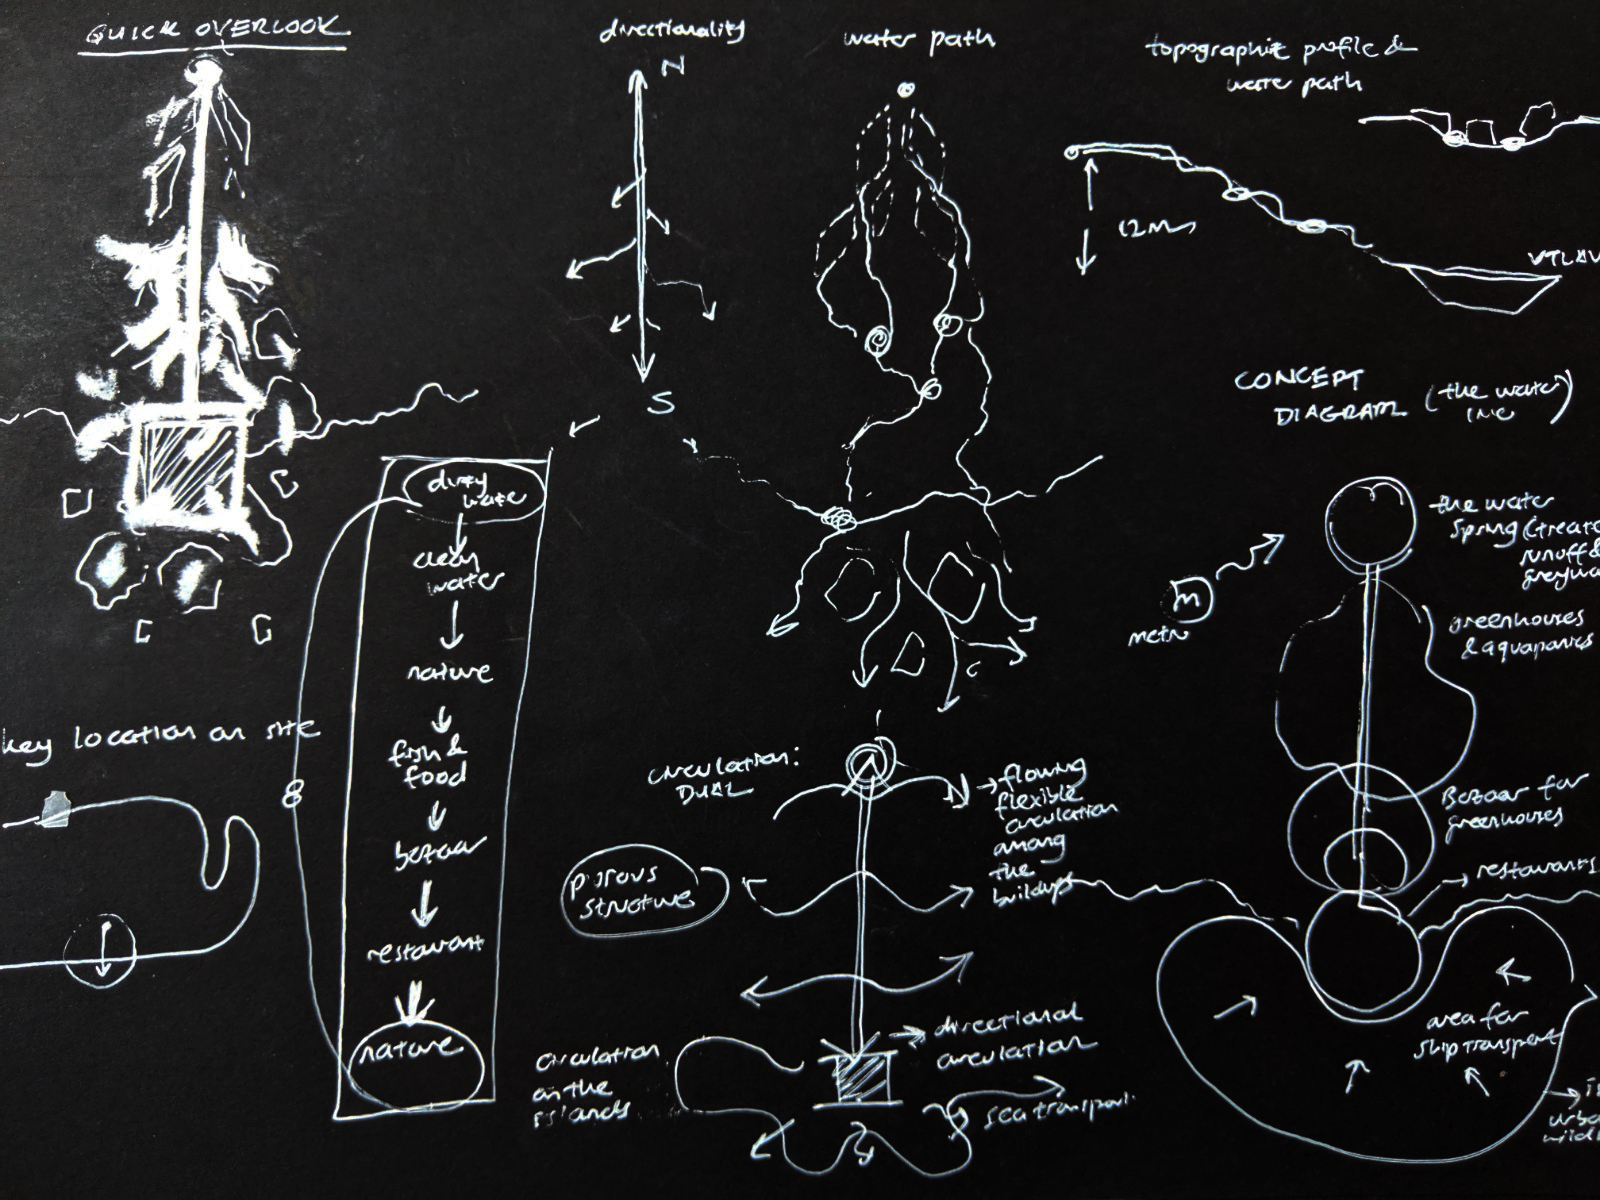 QUICK OVERLOOK
directionality
N
S
water path
topographic profile &
water path
12m
CONCEPT
DIAGRAM (the water
line)
dirty
water
clean
water
nature
fish &
food
bazaar
restaurant
nature
8
key location on site
circulation:
DUAL
flowing
flexible
circulation
among
the
buildings
porous
structure
directional
circulation
circulation
on the
islands
sea transport
m
metro
the water
spring (treate
runoff &
greywa
greenhouses
& aquaponics
Bazaar for
greenhouses
restaurants
area for
ship transport
urba